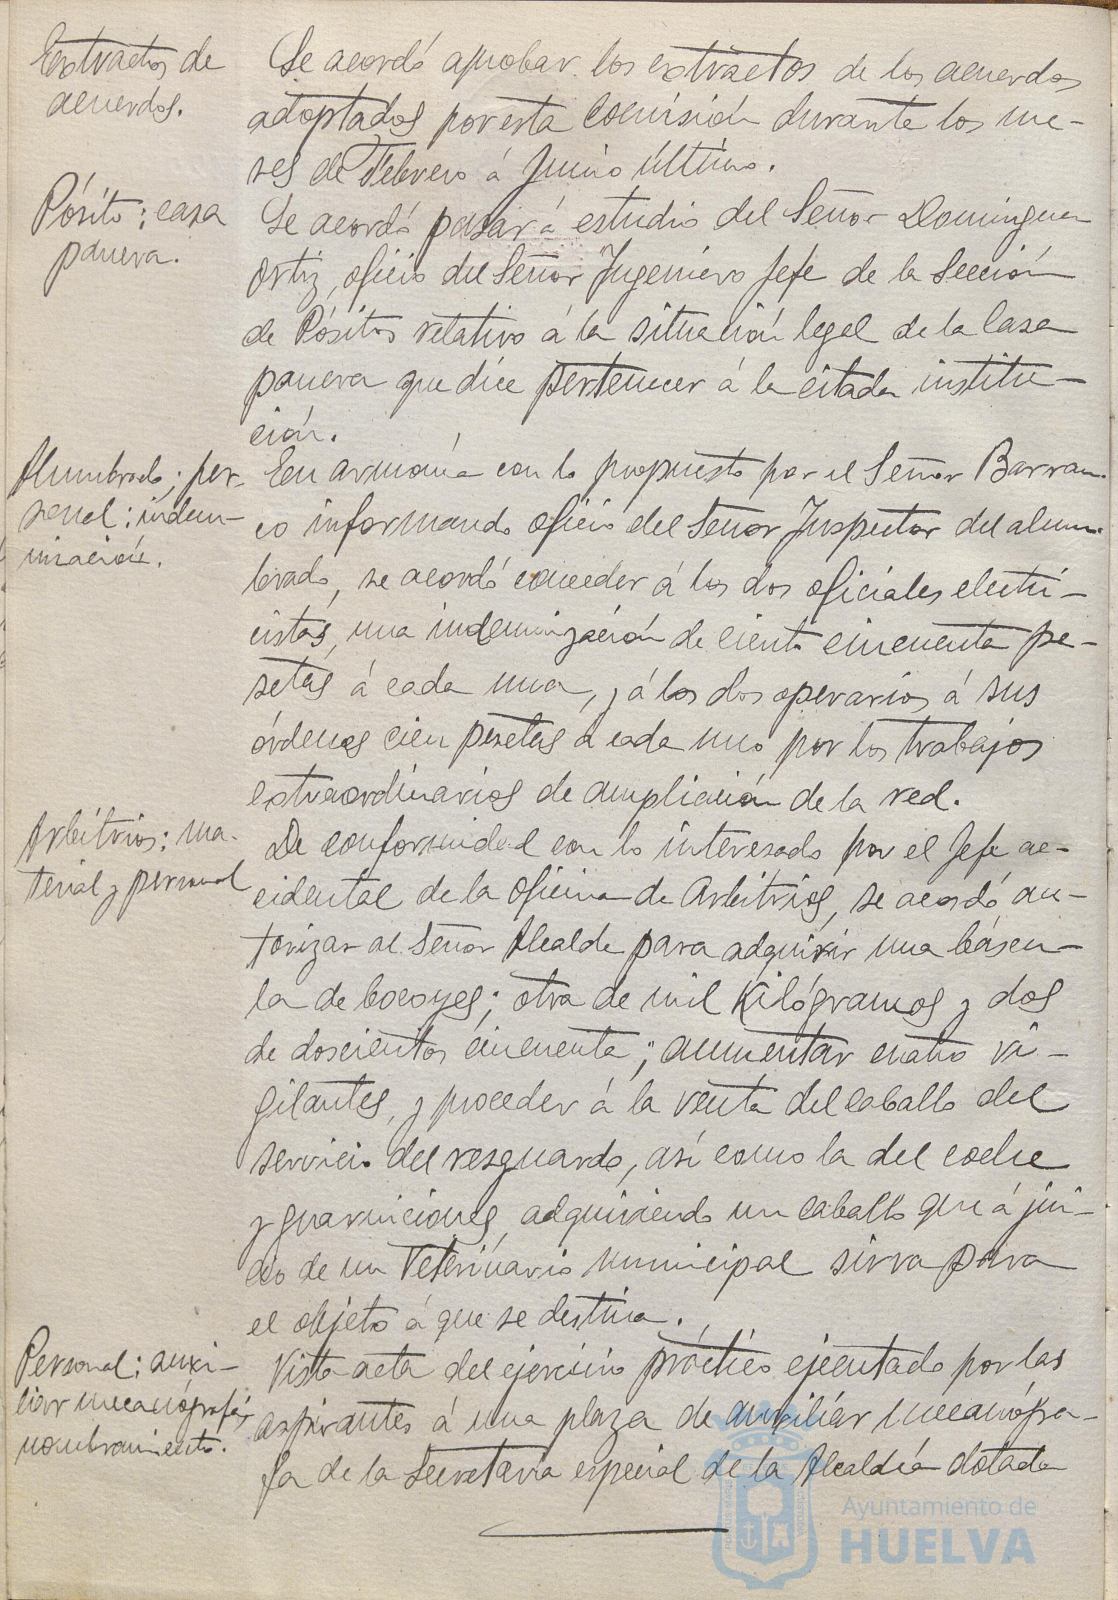 Extractos de
acuerdos.
Se acordó aprobar los extractos de los acuerdos
adoptados por esta Comisión durante los me-
ses de Febrero á Junio último.
Pósito: casa
panera.
Se acordó pasar á estudio del Señor Dominguez
Ortiz, oficio del Señor Ingeniero Jefe de la Sección
de Pósitos relativo á la situación legal de la Casa
panera que dice pertenecer á la citada institu-
ción.
Alumbrado; per-
sonal: indem-
nización.
En armonía con lo propuesto por el Señor Barran-
co informando oficio del Señor Inspector del alum-
brado, se acordó conceder á los dos oficiales electri-
cistas, una indemnización de ciento cincuenta pe-
setas á cada uno, y á los dos operarios á sus
órdenes cien pesetas á cada uno por los trabajos
extraordinarios de ampliación de la red.
Arbitrios: ma-
terial y personal
De conformidad con lo interesado por el Jefe ac-
cidental de la Oficina de Arbitrios, se acordó au-
torizar al Señor Alcalde para adquirir una báscu-
la de bocoyes; otra de mil kilógramos y dos
de doscientos cincuenta; aumentar cuatro vi-
gilantes, y proceder á la venta del caballo del
servicio del resguardo, así como la del coche
y guarniciones, adquiriendo un caballo que á jui-
cio de un Veterinario municipal sirva para
el objeto á que se destina.
Personal: auxi-
liar mecanógrafa,
nombramiento.
Vista acta del ejercicio práctico ejecutado por las
aspirantes á una plaza de auxiliar mecanógra-
fa de la Secretaría especial de la Alcaldía dotada
Ayuntamiento de
HUELVA